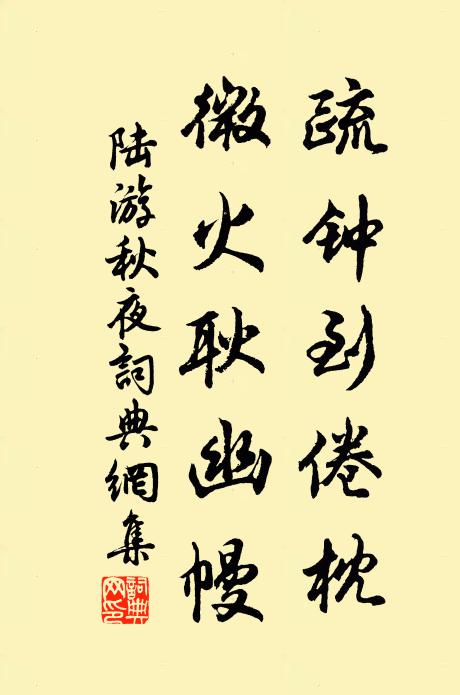 疏钟到倦枕
微火耿幽幔
陆游秋夜詞典網集
詞典
网印